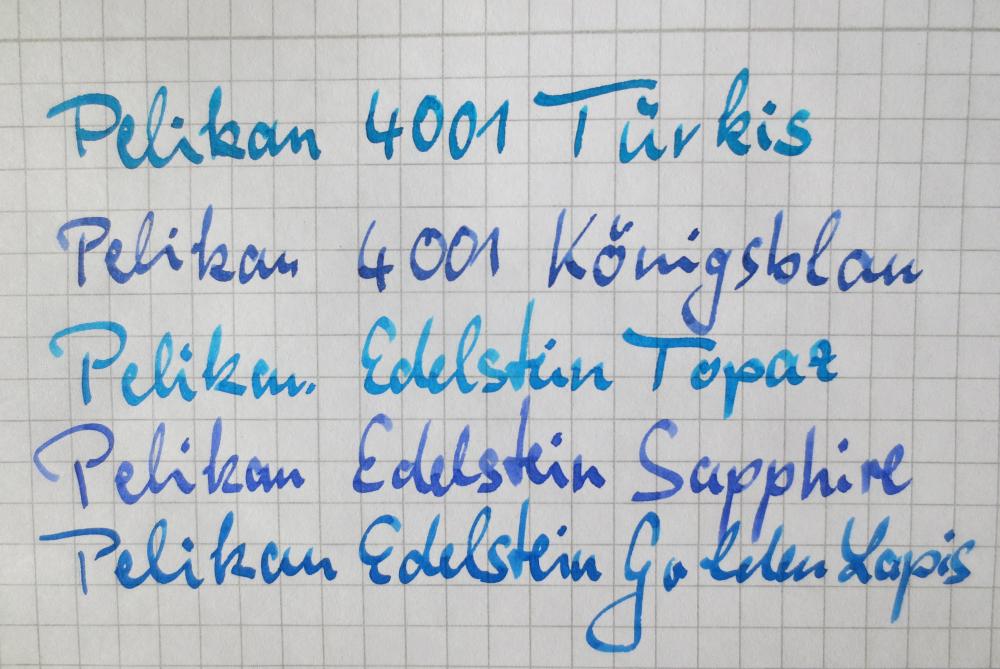 Pelikan 4001 Türkis
Pelikan 4001 Königsblau
Pelikan Edelstein Topaz
Pelikan Edelstein Sapphire
Pelikan Edelstein Golden Lapis